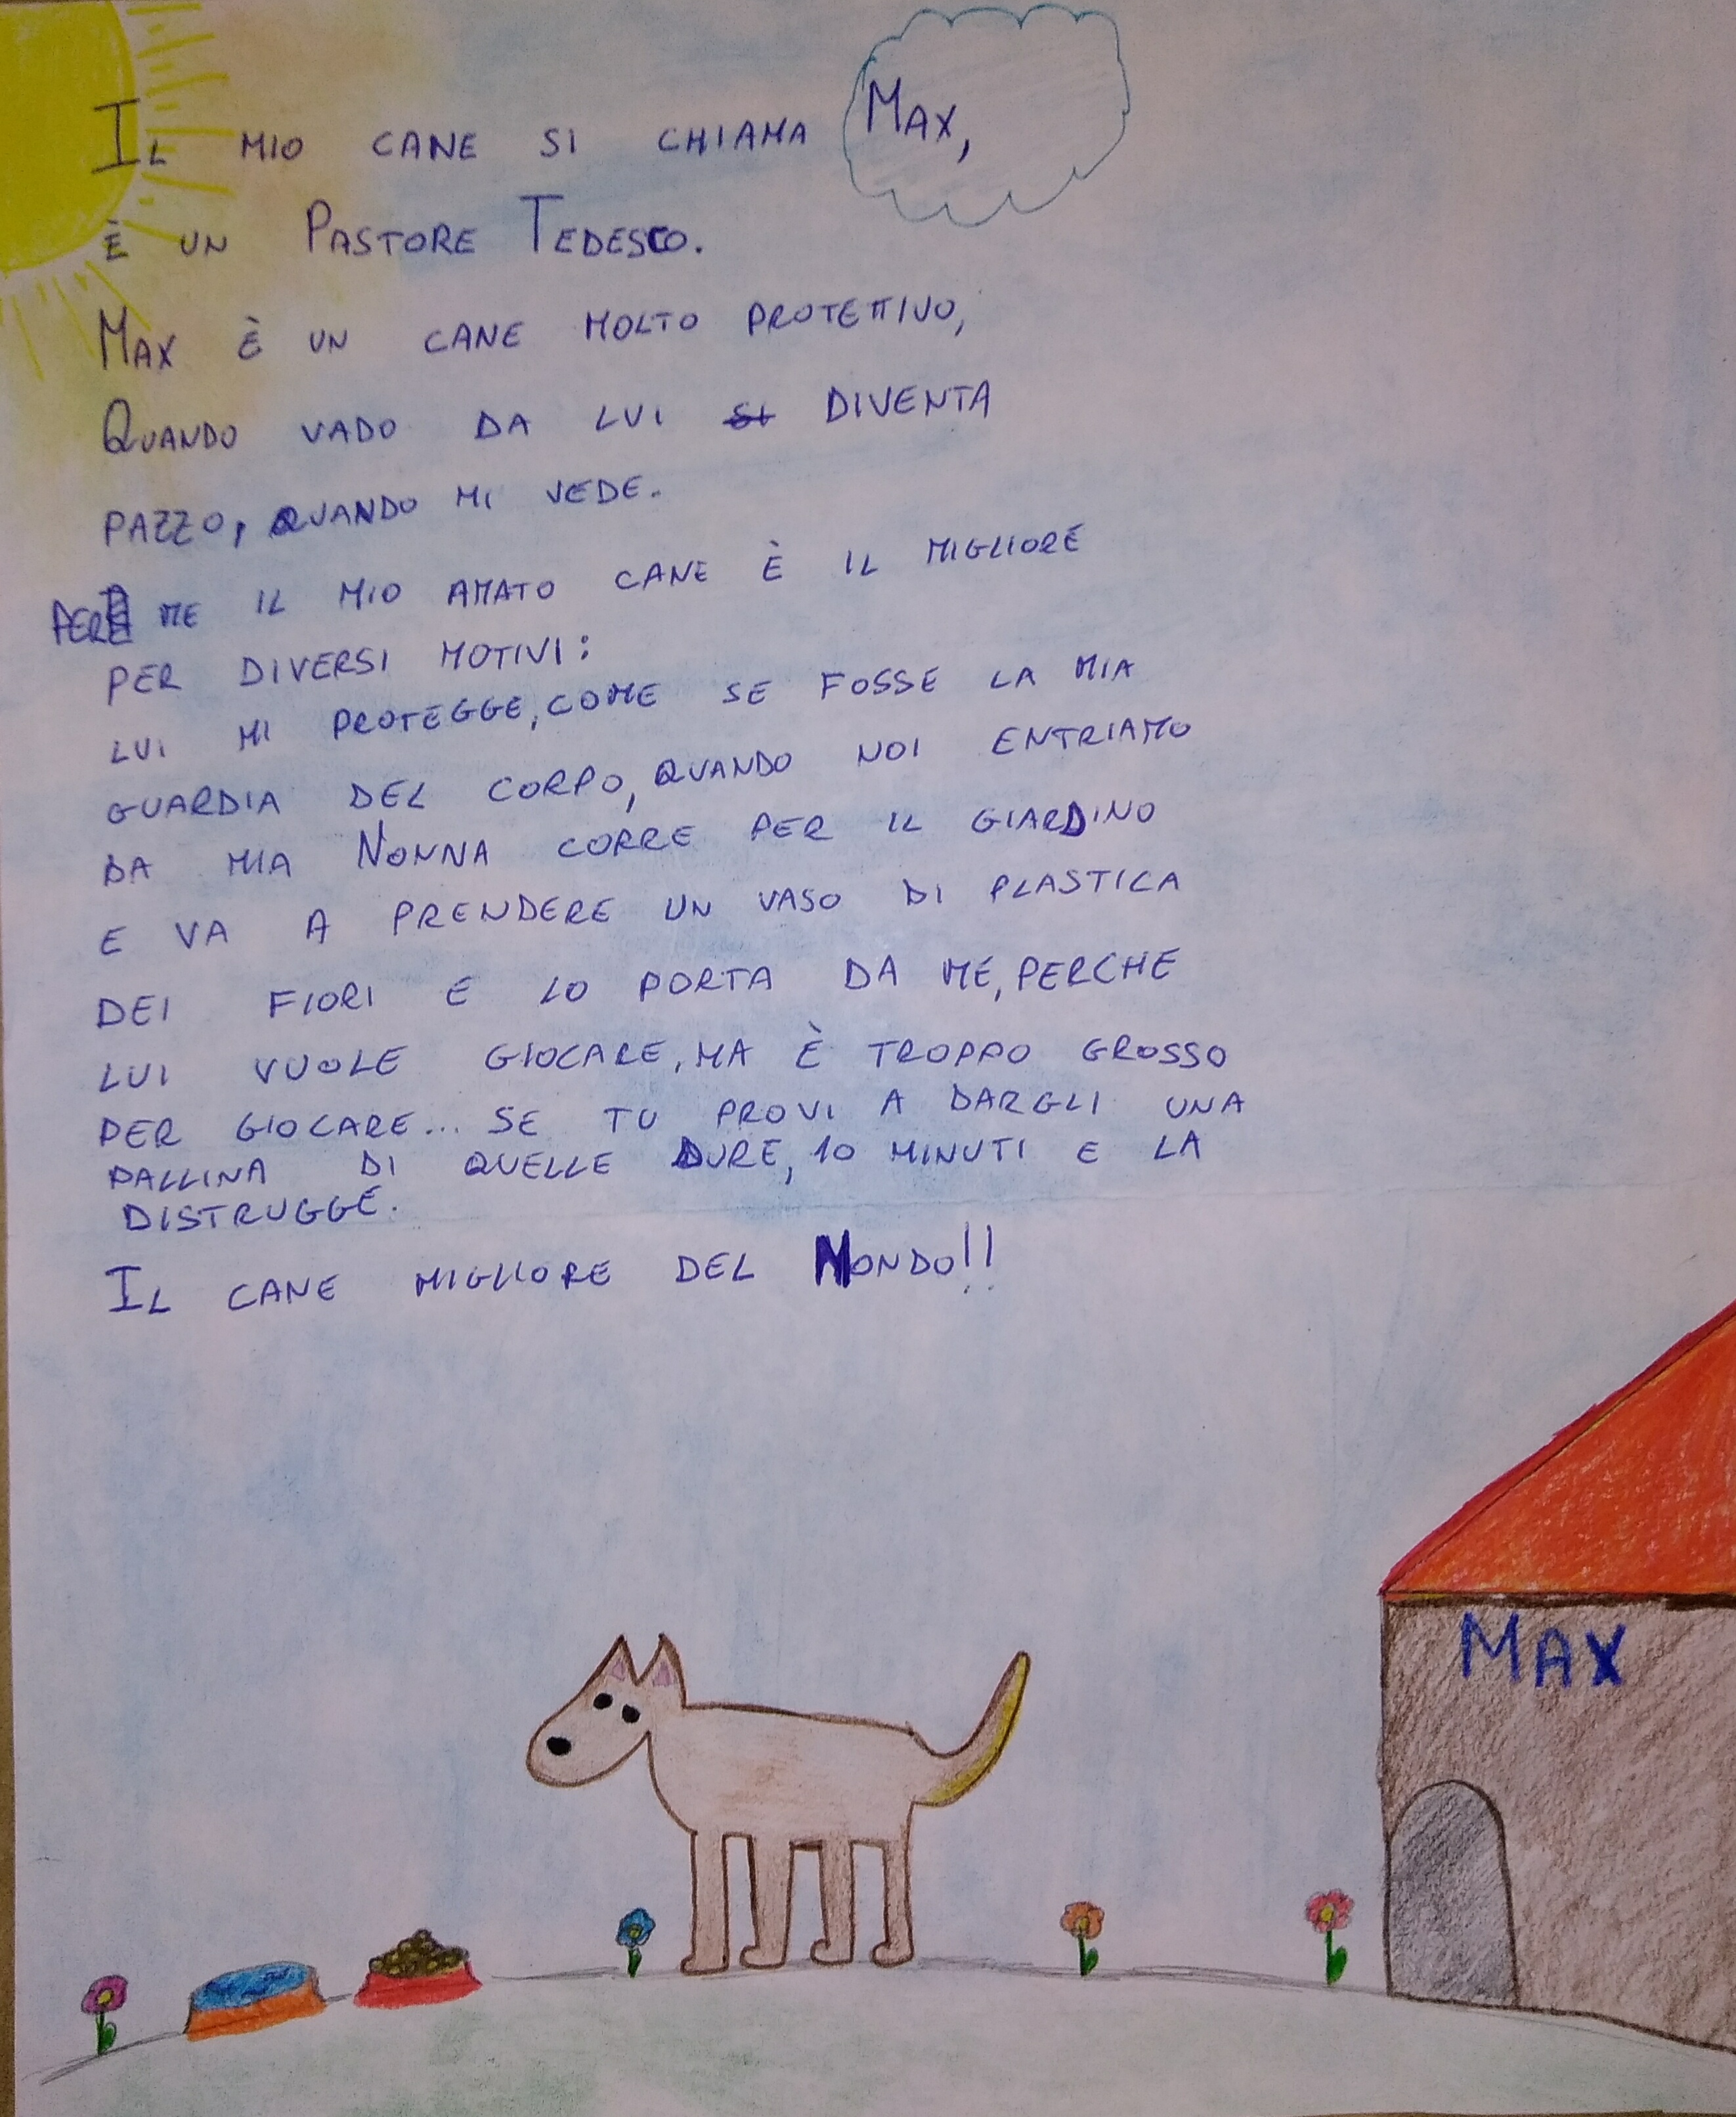 Il mio cane si chiama Max,
è un Pastore Tedesco.
Max è un cane molto protettivo,
Quando vado da lui si diventa
pazzo, quando mi vede.
Per me il mio amato cane è il migliore
per diversi motivi:
lui mi protegge, come se fosse la mia
guardia del corpo, quando noi entriamo
da mia Nonna corre per il giardino
e va a prendere un vaso di plastica
dei fiori e lo porta da me, perche
lui vuole giocare, ma è troppo grosso
per giocare... se tu provi a dargli una
pallina di quelle dure, 10 minuti e la
distrugge.
Il cane migliore del Mondo!!
Max